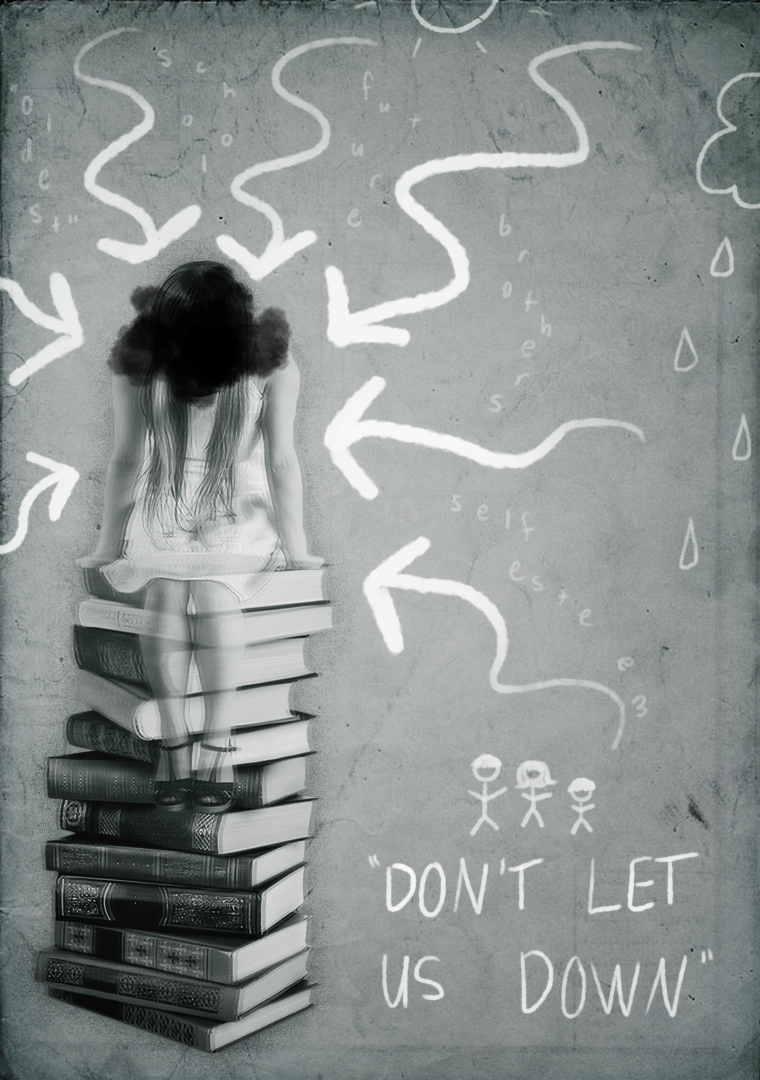 "Oldest"
school
future
brothers
self
esteem
"DON'T LET
US DOWN"